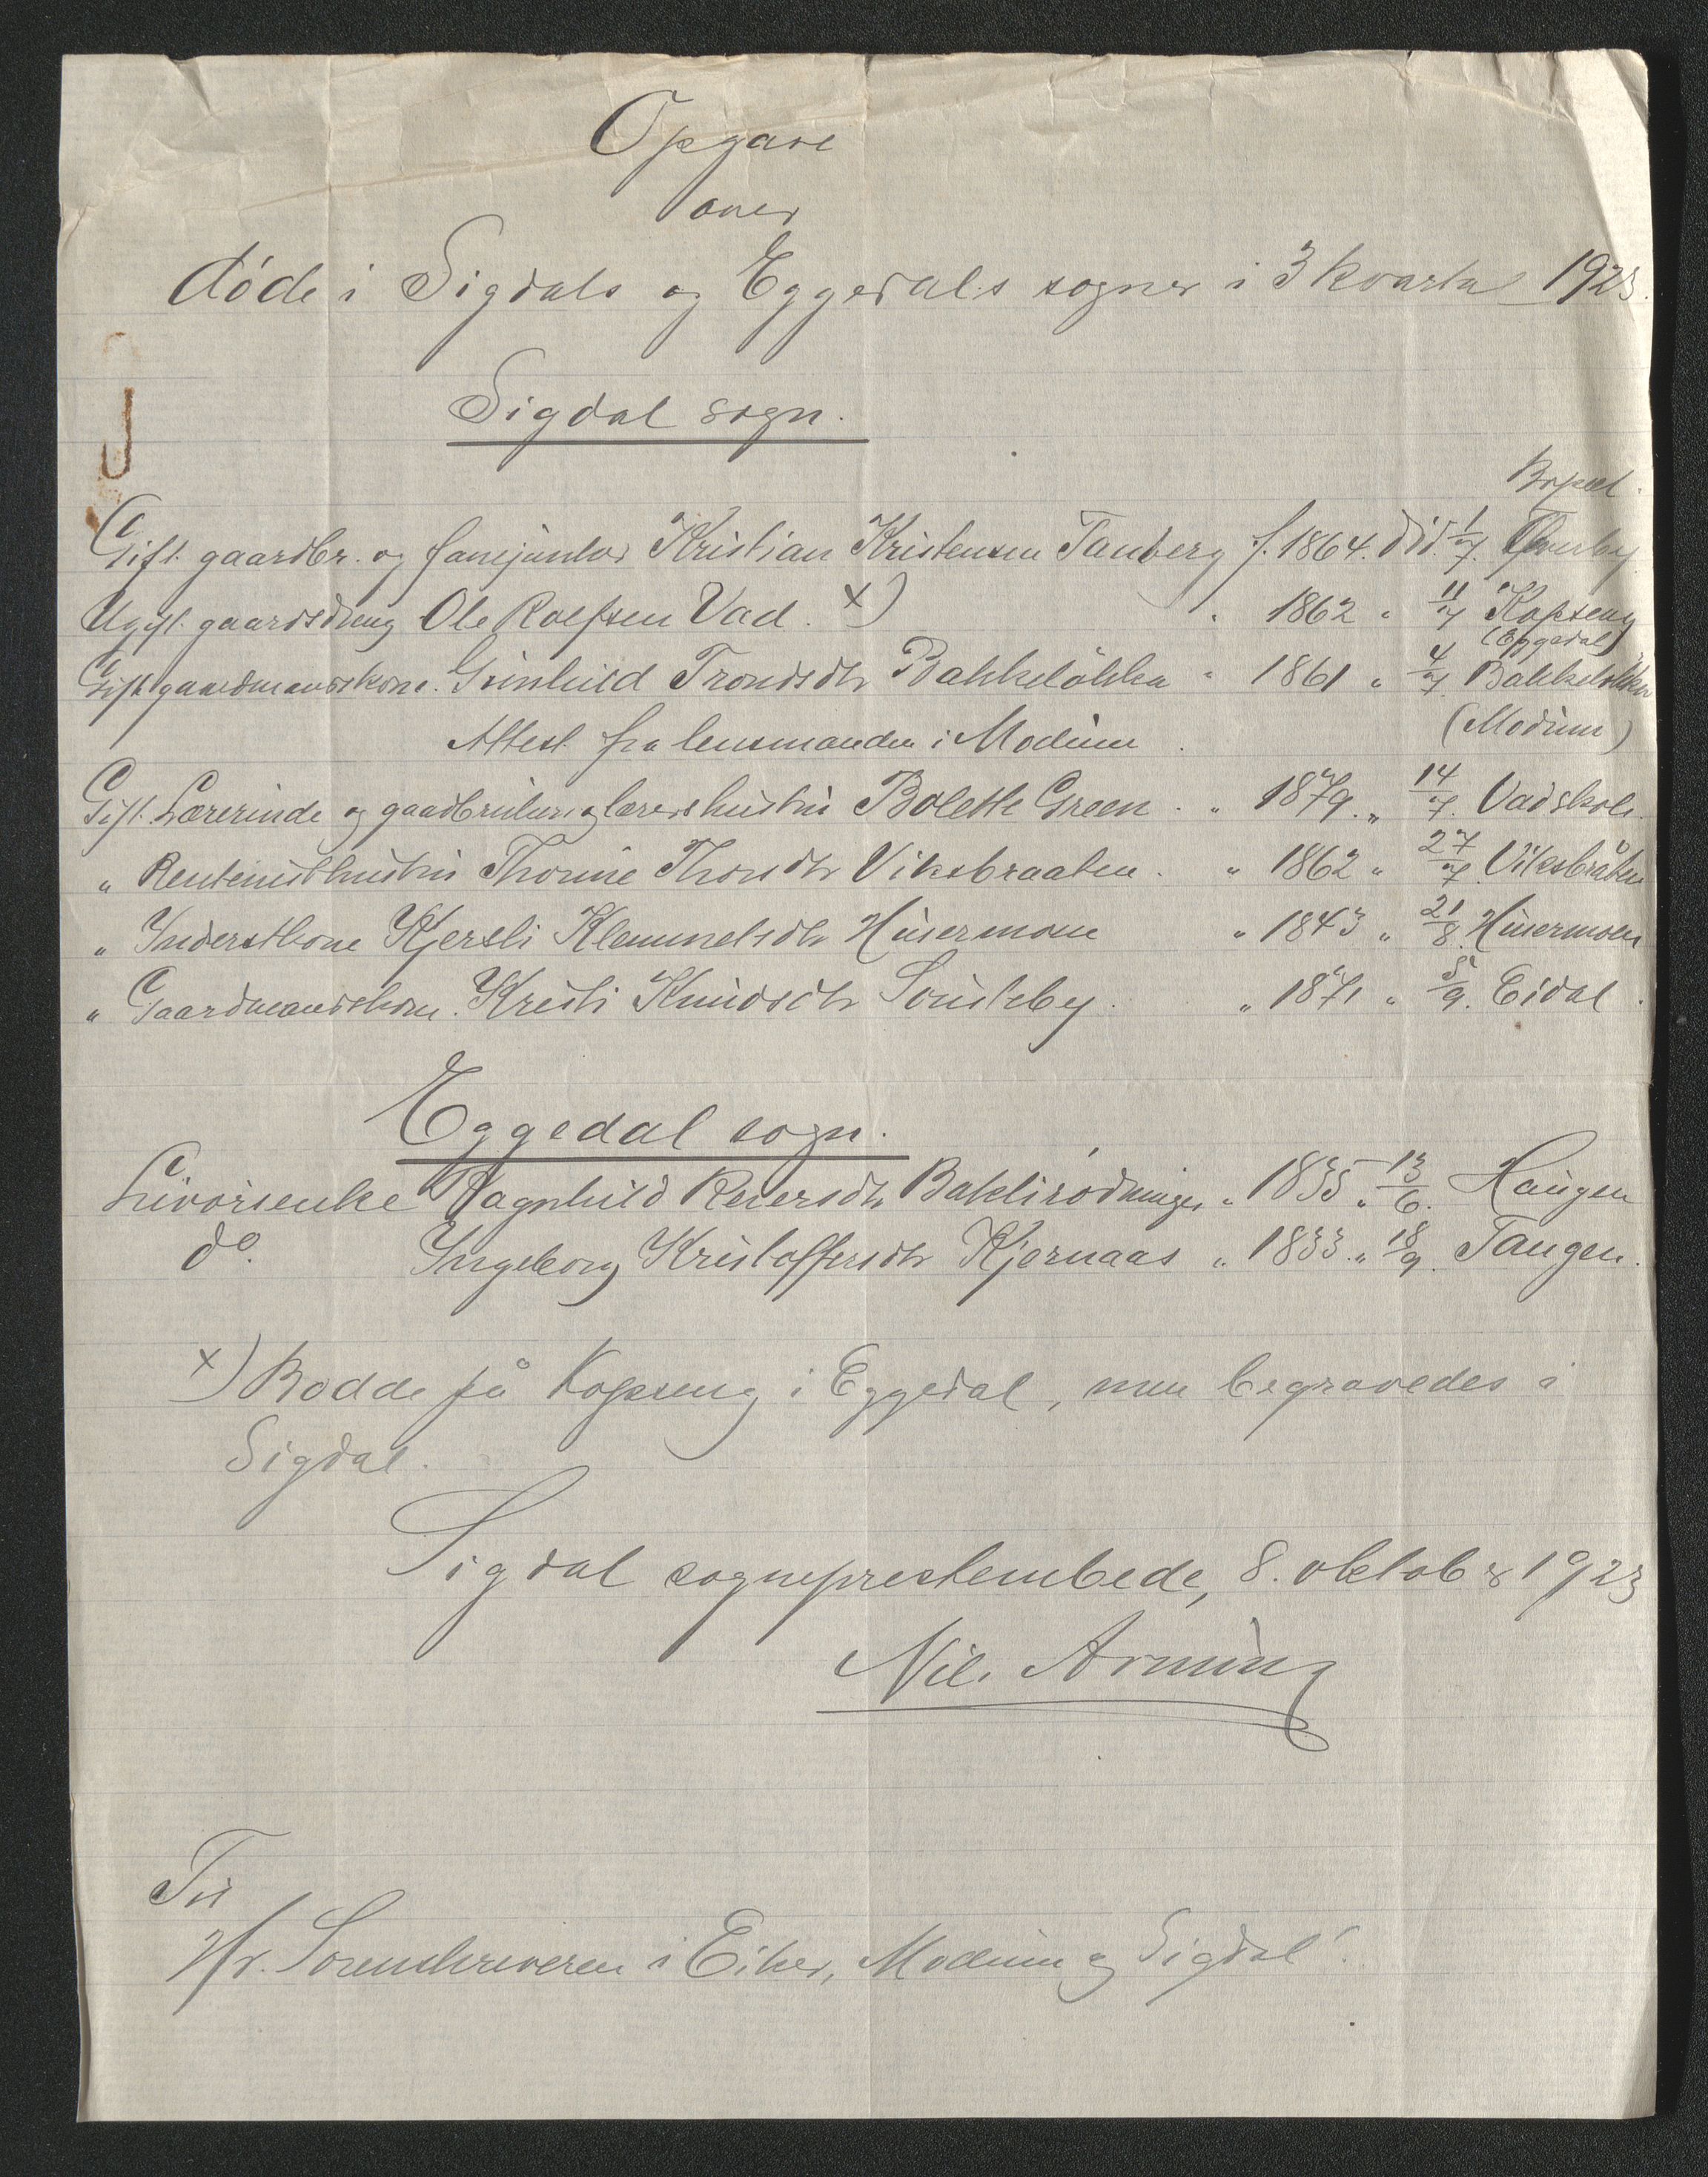 Opgave
over
døde i Sigdals og Eggedals sogner i 3 kvartal 1923.
Sigdal sogn.
Bopæl.
Gift gaardbr. og fanejunker Kristian Kristensen Tanberg f. 1864. død. 1/7. Thorsby
Ugift gaardsdreng Ole Rolfsen Vad. x) " 1862 " 11/7 Kopseng
(Eggedal)
Gift gaardmandskone. Gunhild Trondsdtr Bakkeløkka " 1861 " 4/7 Bakkeløkka
Attest fra lensmanden i Modum. (Modum)
Gift Lærerinde og gaardbruker og lærers hustru Bolette Green. " 1879. " 14/7. Vad skole.
" Rentenisthustru Thorine Thorsdtr Viksbraaten. " 1862 " 27/7 Viksbråten
" Inderstkone Kjersti Klemmetsdtr Husermoen " 1843 " 21/8. Husermoen
" Gaardmandskone. Kristi Knudsdtr Sønsteby. " 1871 " 5/9. Eidal.
Eggedal sogn.
Livørsenke Ragnhild Reiersdtr Baklirødningen " 1835 " 13/6. Haugen
do. Ingeborg Kristoffersdtr Kjernaas " 1833 " 18/9. Tangen.
x) Bodde på Kopseng i Eggedal, men begravedes i
Sigdal.
Sigdal sogneprestembede, 8. oktober 1923
Nils Arnung
Til
Hr. Sorenskriveren i Eiker, Modum og Sigdal.